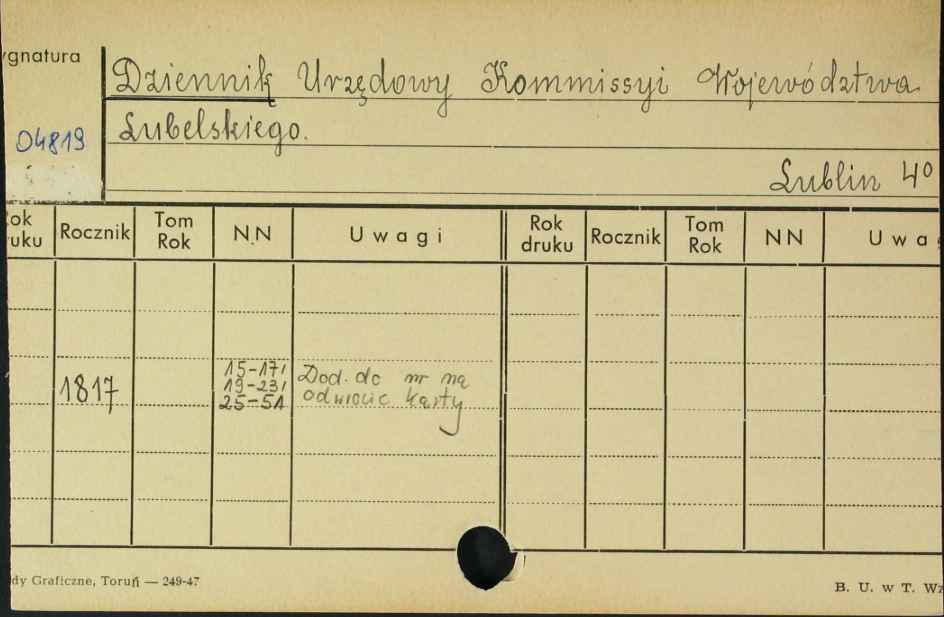 ygnatura
Dziennik Urzędowy Kommissyi Województwa
04819
Lubelskiego.
Lublin 4º
ok
uku
Rocznik
Tom
Rok
NN
Uwagi
Rok
druku
Rocznik
Tom
Rok
NN
Uwag
1817
15-17,
19-23,
25-51
Dod. do nr na
odwrocie karty
dy Graficzne, Toruń — 249-47
B. U. w T. Wz